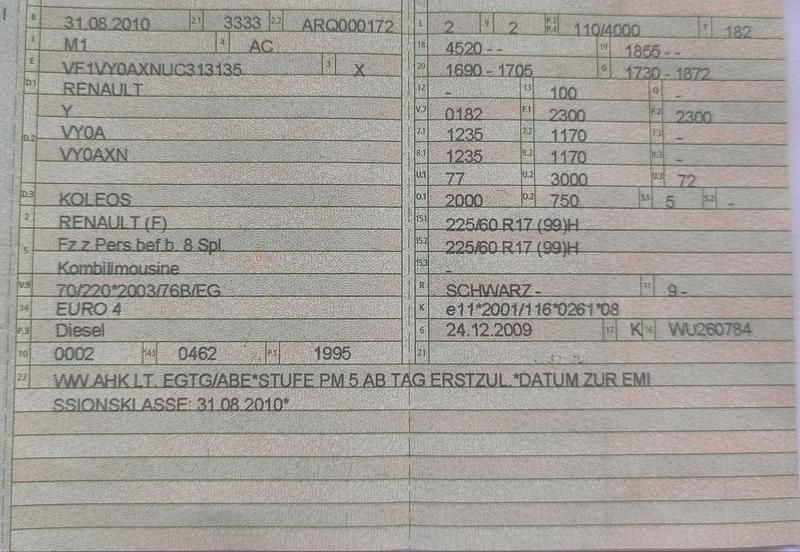 B 31.08.2010 2.1 3333 2.2 ARQ000172
J M1 4 AC
E VF1VY0AXNUC313135 3 X
D.1 RENAULT
Y
D.2 VY0A
VY0AXN
D.3 KOLEOS
2 RENAULT (F)
5 Fz.z.Pers.bef.b. 8 Spl
Kombilimousine
V.9 70/220*2003/76B/EG
14 EURO 4
P.3 Diesel
10 0002 14.1 0462 P.1 1995
L 2 9 2 P.2 P.4 110/4000 T 182
18 4520 - - 19 1855 - -
20 1690 - 1705 G 1730 - 1872
12 - 13 100 Q -
V.7 0182 F.1 2300 F.2 2300
7.1 1235 7.2 1170 7.3 -
8.1 1235 8.2 1170 8.3 -
U.1 77 U.2 3000 U.3 72
O.1 2000 O.2 750 S.1 5 S.2 -
15.1 225/60 R17 (99)H
15.2 225/60 R17 (99)H
15.3 -
R SCHWARZ - 11 9 -
K e11*2001/116*0261*08
6 24.12.2009 17 K 16 WU260784
21
22 WW.AHK LT. EGTG/ABE*STUFE PM 5 AB TAG ERSTZUL.*DATUM ZUR EMI
SSIONSKLASSE: 31.08.2010*